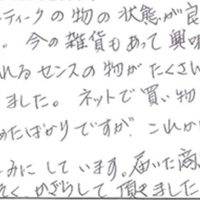 ティークの物の状態が良
。今の雑貨もあって興味
れるセンスの物がたくさん
ました。ネットで買い物
めたばかりですが、これか
みにしています。届いた商
そく、かざらして頂きました